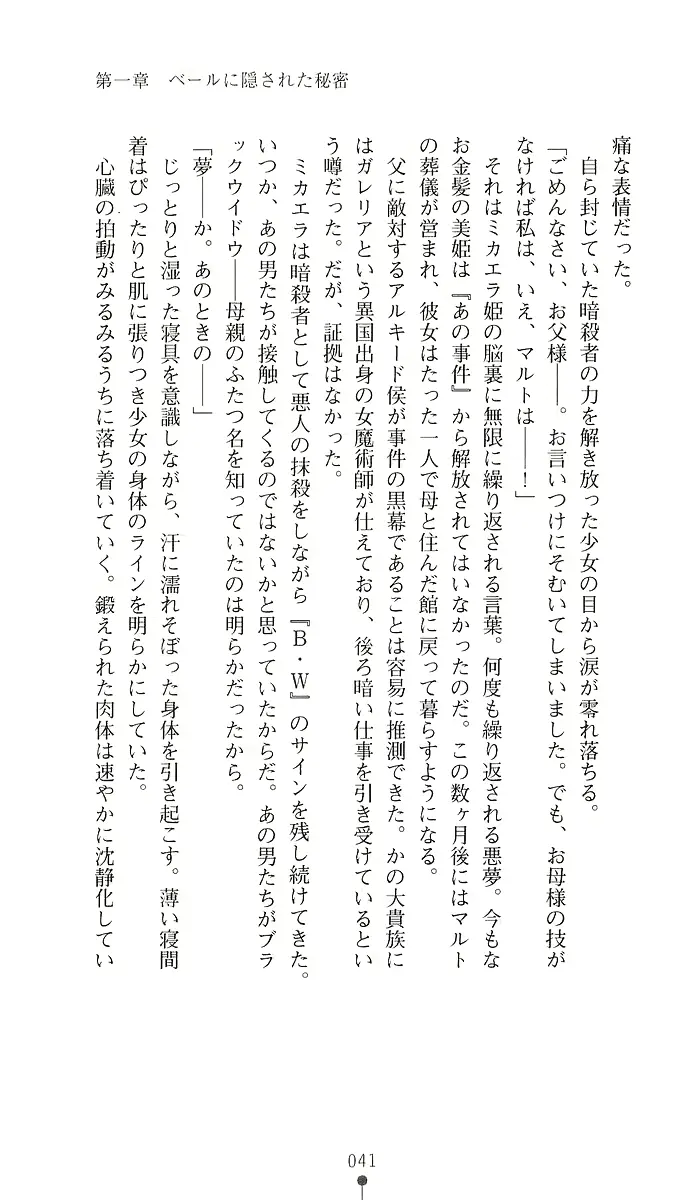 第一章　ベールに隠された秘密
痛な表情だった。
　自ら封じていた暗殺者の力を解き放った少女の目から涙が零れ落ちる。
「ごめんなさい、お父様――。お言いつけにそむいてしまいました。でも、お母様の技が
なければ私は、いえ、マルトは――！」
　それはミカエラ姫の脳裏に無限に繰り返される言葉。何度も繰り返される悪夢。今もな
お金髪の美姫は『あの事件』から解放されてはいなかったのだ。この数ヶ月後にはマルト
の葬儀が営まれ、彼女はたった一人で母と住んだ館に戻って暮らすようになる。
　父に敵対するアルキード侯が事件の黒幕であることは容易に推測できた。かの大貴族に
はガレリアという異国出身の女魔術師が仕えており、後ろ暗い仕事を引き受けているとい
う噂だった。だが、証拠はなかった。
　ミカエラは暗殺者として悪人の抹殺をしながら『Ｂ・Ｗ』のサインを残し続けてきた。
いつか、あの男たちが接触してくるのではないかと思っていたからだ。あの男たちがブラ
ックウイドウ――母親のふたつ名を知っていたのは明らかだったから。
「夢――か。あのときの――」
　じっとりと湿った寝具を意識しながら、汗に濡れそぼった身体を引き起こす。薄い寝間
着はぴったりと肌に張りつき少女の身体のラインを明らかにしていた。
　心臓の拍動がみるみるうちに落ち着いていく。鍛えられた肉体は速やかに沈静化してい
041